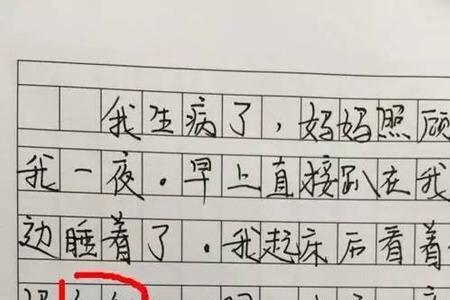 我生病了，妈妈照顾
我一夜.早上直接趴在我
边睡着了.我起床后看着